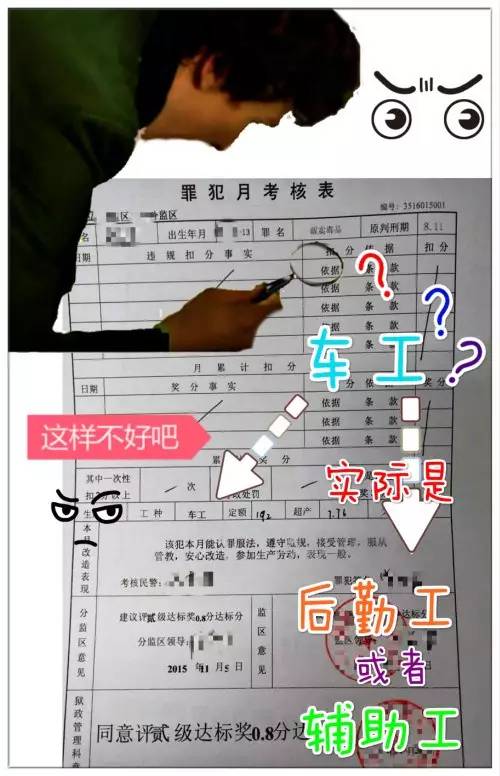 罪犯月考核表
编号：3516015001
区 分监区
名 出生年月 -13 罪名 贩卖毒品 原判刑期 8.11
日期 违规扣分事实 扣分依据 扣分
依据 条款
依据 条款
依据 条款
依据 条款
？
？
？
车工
月累计扣分
日期 奖分事实 分依据 奖分
依据 条款
依据 条款
依据 条款
这样不好吧
其中一次性
次
实际是
工种 车工 定额 192 超产
本月改造表现
该犯本月能认罪服法，遵守监规，接受管理，服从
管教，安心改造，参加生产劳动，表现一般。
考核民警：
后勤工
或者
辅助工
分监区意见
建议评贰级达标奖0.8分达标分
分监区领导：
2015 年 11 月 5 日
监区意见
狱政管理科意
同意评贰级达标奖0.8分达